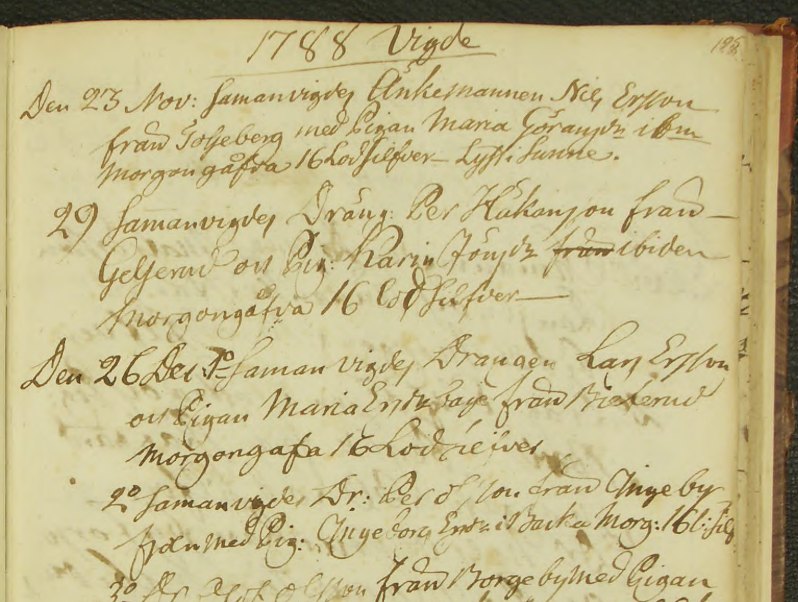 1788 Vigde
Den 23 Nov: Sammanvigdes Änkemannen Nils Ersson
från med Pigan Maria Göransdr ibm
Morgongåfva 16 Lod Silfver Lyst: Sunne.
29 Sammanvigdes Dräng: Per Håkansson från
Gelserud och Pig: Karin Jönsdr från ibidem
Morgongåfva 16 lod Silfver
Den 26 Dec 1o Samman vigdes Drängen Lars Ersson
och Pigan Maria Ersdr från
Morgongåfa 16 Lod Silfver
2o Samanvigdes Dr: Per Olsson från Ingeby
med Pig: Ingeborg Ersdr i Backa Morg: 16 l: Silf
3o Olsson från Borgeby med Pigan